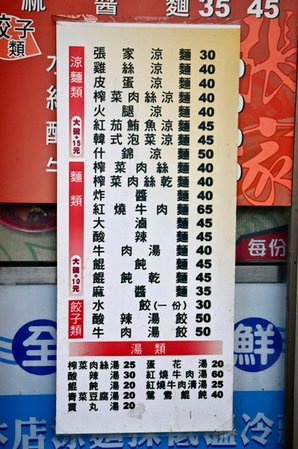 醬麵 35 45
餃子類
張家
涼麵類
大碗+15元
張家涼麵 30
雞絲涼麵 40
皮蛋涼麵 40
榨菜肉絲涼麵 40
火腿涼麵 40
紅茄鮪魚涼麵 45
韓式泡菜涼麵 45
什錦涼麵 50
麵類
大碗+10元
榨菜肉絲麵 40
榨菜肉絲乾麵 40
炸醬麵 40
紅燒牛肉麵 65
大滷麵 45
酸辣麵 45
牛肉湯麵 40
餛飩麵 45
餛飩乾麵 45
麻醬麵 35
餃子類
水餃(一份) 30
酸辣湯餃 50
牛肉湯餃 50
湯類
榨菜肉絲湯 25
酸辣湯 30
餛飩湯 20
青菜豆腐湯 20
貢丸湯 20
蛋花湯 20
紅燒牛肉湯 60
紅燒牛肉清湯 25
鴛鴦餛飩 40
每份
全
鮮
本店涼麵採低溫冷